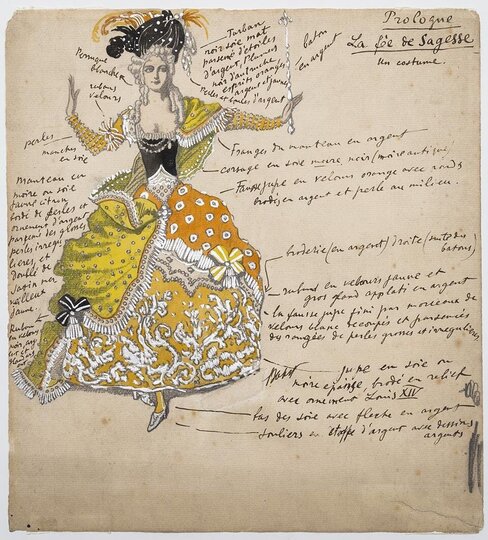 Prologue
La fée de Sagesse
un costume.
Turban
noir soie mat
parsemé d'etoiles
d'argent, Plumes
noir d'autruche
esprits oranges
Perles et boules d'argent
baton
en argent
Perruque
blanche
rubans
velours
perles
manches
en soie
manteau en
moire ou soie
jaune citron
brodé de perles et
ornement d'argent
parsemé des
perles
lieres, et
doublé de
Satin
jaune.
Ruban
en velours
noir
Franges du manteau en argent
corsage en soie moire noir (moire antique)
Fausse jupe en velours orange avec ronds
brodés en argent et perle au milieu.
broderie (en argent) droite (suite des
batons)
ruband en velours jaune et
gros gland applati en argent
la fausse jupe fini par morceaux de
velours blanc decoupés et parsemés
des rangées de perles grosses et irregulieres
jupe en soie ou
moire epaisse, brodé en relief
avec ornement Louis XIV
bas des soie avec fleche en argent
souliers en étoffe d'argent avec dessins
argents